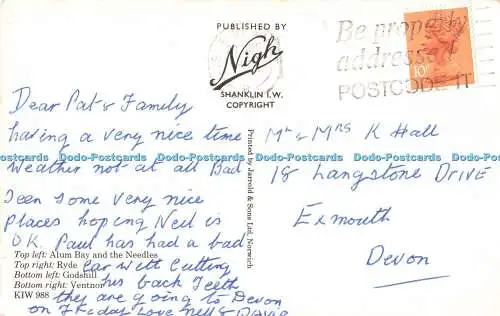 PUBLISHED BY
Nigh
SHANKLIN I.W.
COPYRIGHT
Be properly
addressed
POSTCODE IT
10
Dear Pat & Family
having a very nice time
Weather not at all Bad
Seen some very nice
Places hoping Neil is
O.K. Paul has had a bad
Ear with Cutting
his back Teeth
they are going to Devon
on Friday Love Nell & David
Top left: Alum Bay and the Needles
Top right: Ryde
Bottom left: Godshill
Bottom right: Ventnor
KIW 988
Printed by Jarrold & Sons Ltd, Norwich
Mr & Mrs K Hall
18 Langstone DRIVE
Exmouth
Devon
Dodo-Postcards Dodo-Postcards Dodo-Postcards Dodo-Postcards Dodo-Postcards Dodo-Postcards